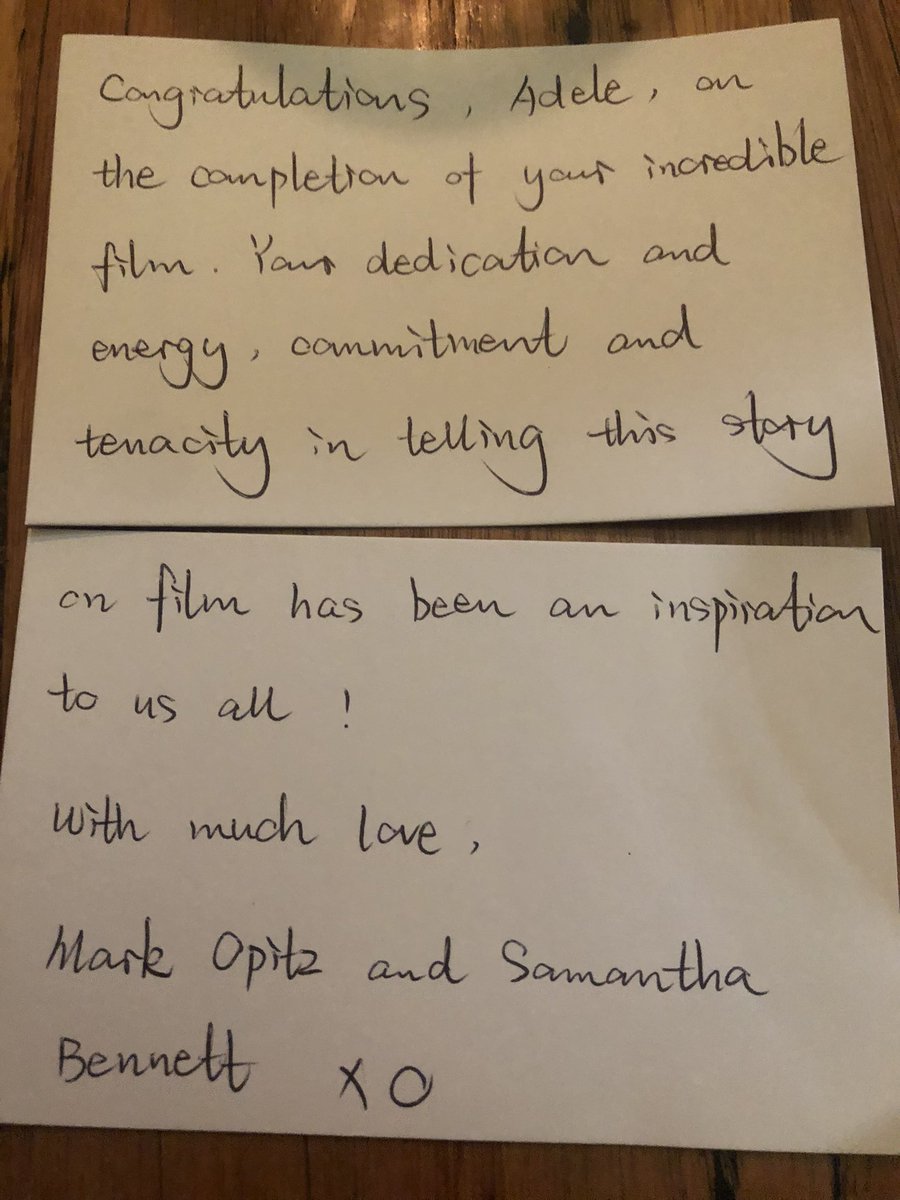 Congratulations, Adele, on
the completion of your incredible
film. Your dedication and
energy, commitment and
tenacity in telling this story
on film has been an inspiration
to us all !
With much love,
Mark Opitz and Samantha
Bennett XO